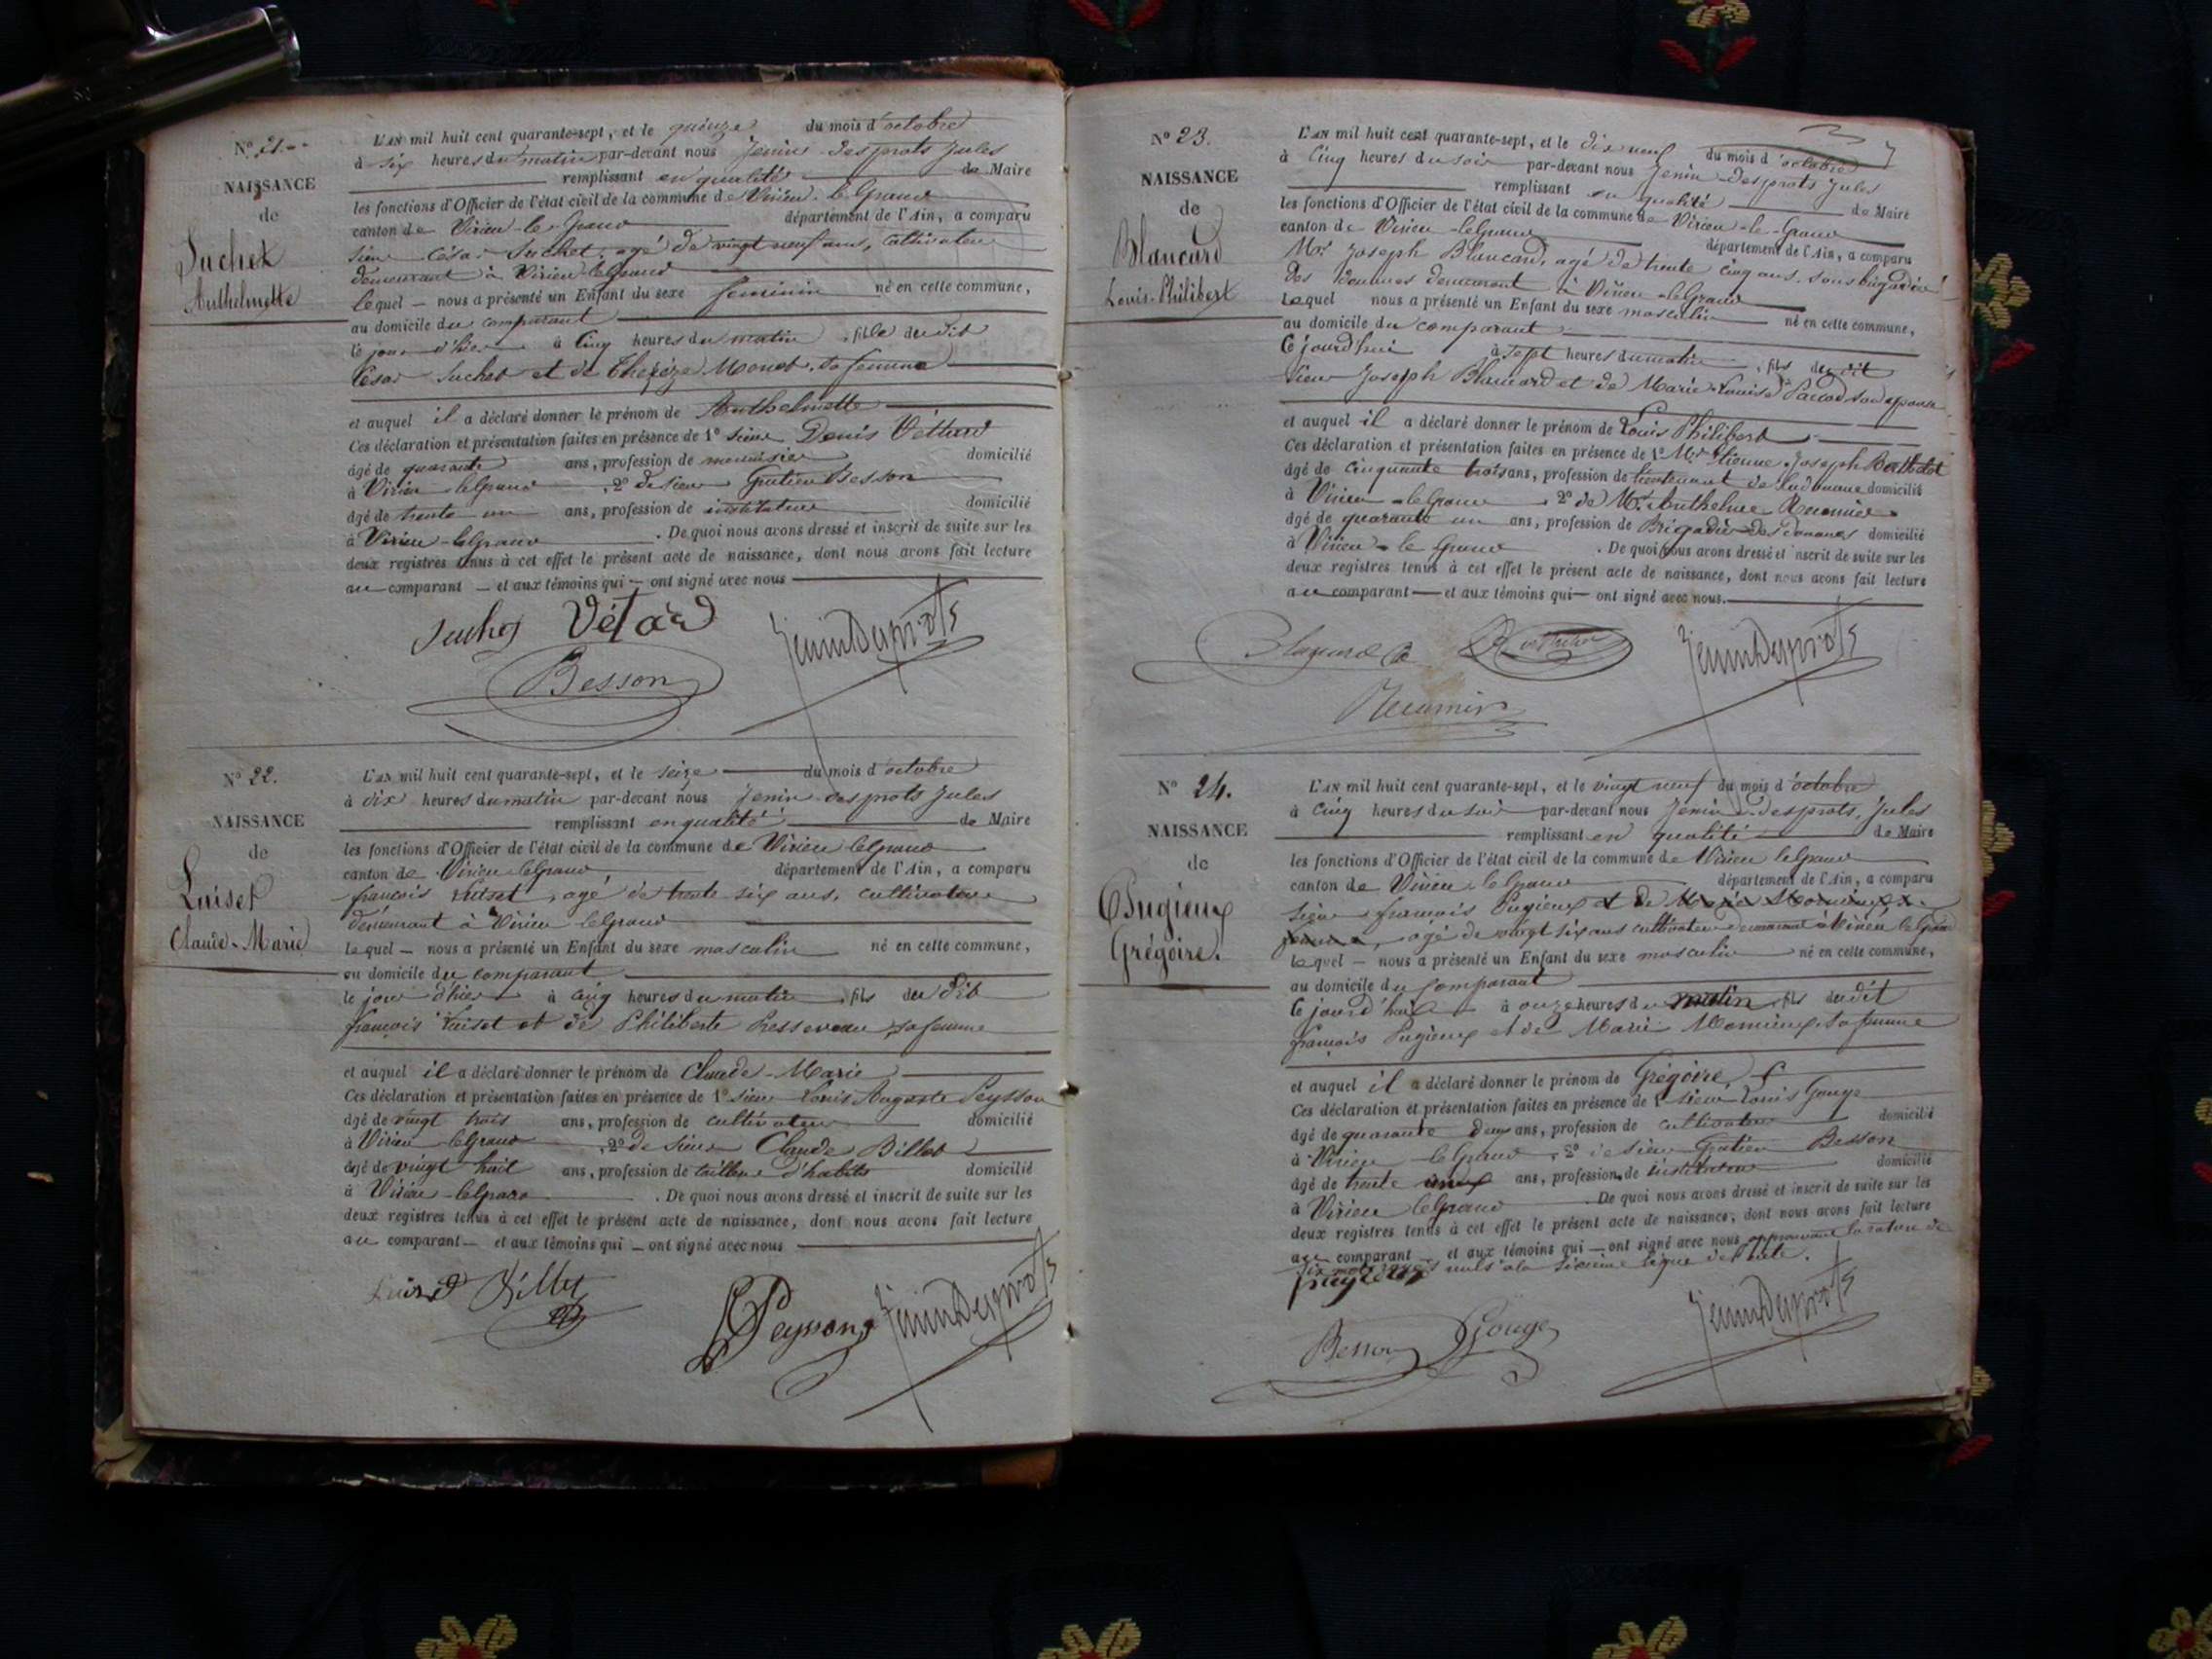 N° 21.
NAISSANCE
de
Suchet
Anthelmette
L'AN mil huit cent quarante-sept, et le quinze du mois d'octobre
à six heures du matin par-devant nous Jenin Desprots Jules
remplissant en qualité de Maire
les fonctions d'Officier de l'état civil de la commune de Virieu-le-Grand
canton de Virieu-le-Grand département de l'Ain, a comparu
sieur César Suchet, agé de vingt neuf ans, cultivateur
demeurant à Virieu-le Grand
lequel nous a présenté un Enfant du sexe feminin né en cette commune,
au domicile du comparant
le jour d'hier à cinq heures du matin, fille dudit
César Suchet et de Thérèze Monet, sa femme
et auquel il a déclaré donner le prénom de Anthelmette
Ces déclaration et présentation faites en présence de 1° sieur Denis Vettard
âgé de quarante ans, profession de menuisier domicilié
à Virieu-le Grand, 2° de sieur Gratien Besson
âgé de trente un ans, profession de instituteur domicilié
à Virieu-le Grand. De quoi nous avons dressé et inscrit de suite sur les
deux registres tenus à cet effet le présent acte de naissance, dont nous avons fait lecture
au comparant et aux témoins qui ont signé avec nous
Suchet Vétard JeninDesprots
Besson
N° 22.
NAISSANCE
de
Luiset
Claude-Marie
L'AN mil huit cent quarante-sept, et le seize du mois d'octobre
à dix heures du matin par-devant nous Jenin-Desprots Jules
remplissant en qualité de Maire
les fonctions d'Officier de l'état civil de la commune de Virieu le Grand
canton de Virieu le Grand département de l'Ain, a comparu
françois Luiset, agé de trente six ans, cultivateur
demeurant à Virieu le Grand
lequel nous a présenté un Enfant du sexe masculin né en cette commune,
au domicile du comparant
le jour d'hier à cinq heures du matin, fils dudit
françois Luiset et de Philiberte sa femme
et auquel il a déclaré donner le prénom de Claude-Marie
Ces déclaration et présentation faites en présence de 1° sieur Louis Auguste Peysson
âgé de vingt trois ans, profession de cultivateur domicilié
à Virieu le Grand, 2° de sieur Claude Billet
âgé de vingt huit ans, profession de tailleur d'habits domicilié
à Virieu-le Grand. De quoi nous avons dressé et inscrit de suite sur les
deux registres tenus à cet effet le présent acte de naissance, dont nous avons fait lecture
au comparant et aux témoins qui ont signé avec nous
Luiset Billet Peysson JeninDesprots
N° 23.
NAISSANCE
de
Blancard
Louis-Philibert
L'AN mil huit cent quarante-sept, et le dix neuf du mois d'octobre
à cinq heures du soir par-devant nous Jenin-Desprots Jules
remplissant en qualité de Maire
les fonctions d'Officier de l'état civil de la commune de Virieu-le-Grand
canton de Virieu-le Grand département de l'Ain, a comparu
Mr. Joseph Blancard, agé de trente cinq ans, sous brigadier
des douanes demeurant à Virieu-le Grand
lequel nous a présenté un Enfant du sexe masculin né en cette commune,
au domicile du comparant
ce jourd'hui à sept heures du matin, fils dudit
sieur Joseph Blancard et de Marie-Louise son épouse
et auquel il a déclaré donner le prénom de Louis Philibert
Ces déclaration et présentation faites en présence de 1° Mr. Etienne-Joseph Berthelot
âgé de cinquante trois ans, profession de lieutenant des douanes domicilié
à Virieu-le Grand, 2° de Mr. Anthelme
âgé de quarante un ans, profession de Brigadier des douanes domicilié
à Virieu-le Grand. De quoi nous avons dressé et inscrit de suite sur les
deux registres tenus à cet effet le présent acte de naissance, dont nous avons fait lecture
au comparant et aux témoins qui ont signé avec nous.
JeninDesprots
N° 24.
NAISSANCE
de
Pugieux
Grégoire.
L'AN mil huit cent quarante-sept, et le vingt neuf du mois d'octobre
à cinq heures du soir par-devant nous Jenin-Desprots, Jules
remplissant en qualité de Maire
les fonctions d'Officier de l'état civil de la commune de Virieu le Grand
canton de Virieu le Grand département de l'Ain, a comparu
sieur françois Pugieux et de Marie
femme, agé de vingt six ans cultivateur demeurant à Virieu le Grand
lequel nous a présenté un Enfant du sexe masculin né en cette commune,
au domicile du comparant
ce jourd'hui à onze heures du matin, fils dudit
françois Pugieux et de Marie sa femme
et auquel il a déclaré donner le prénom de Grégoire
Ces déclaration et présentation faites en présence de 1° sieur Louis Gouge
âgé de quarante deux ans, profession de cultivateur domicilié
à Virieu le Grand, 2° de sieur Gratien Besson
âgé de trente ans, profession de instituteur domicilié
à Virieu le Grand. De quoi nous avons dressé et inscrit de suite sur les
deux registres tenus à cet effet le présent acte de naissance, dont nous avons fait lecture
au comparant et aux témoins qui ont signé avec nous approuvant la rature de
six mots rayés nuls à la sixième ligne de l'acte.
Besson Gouge JeninDesprots